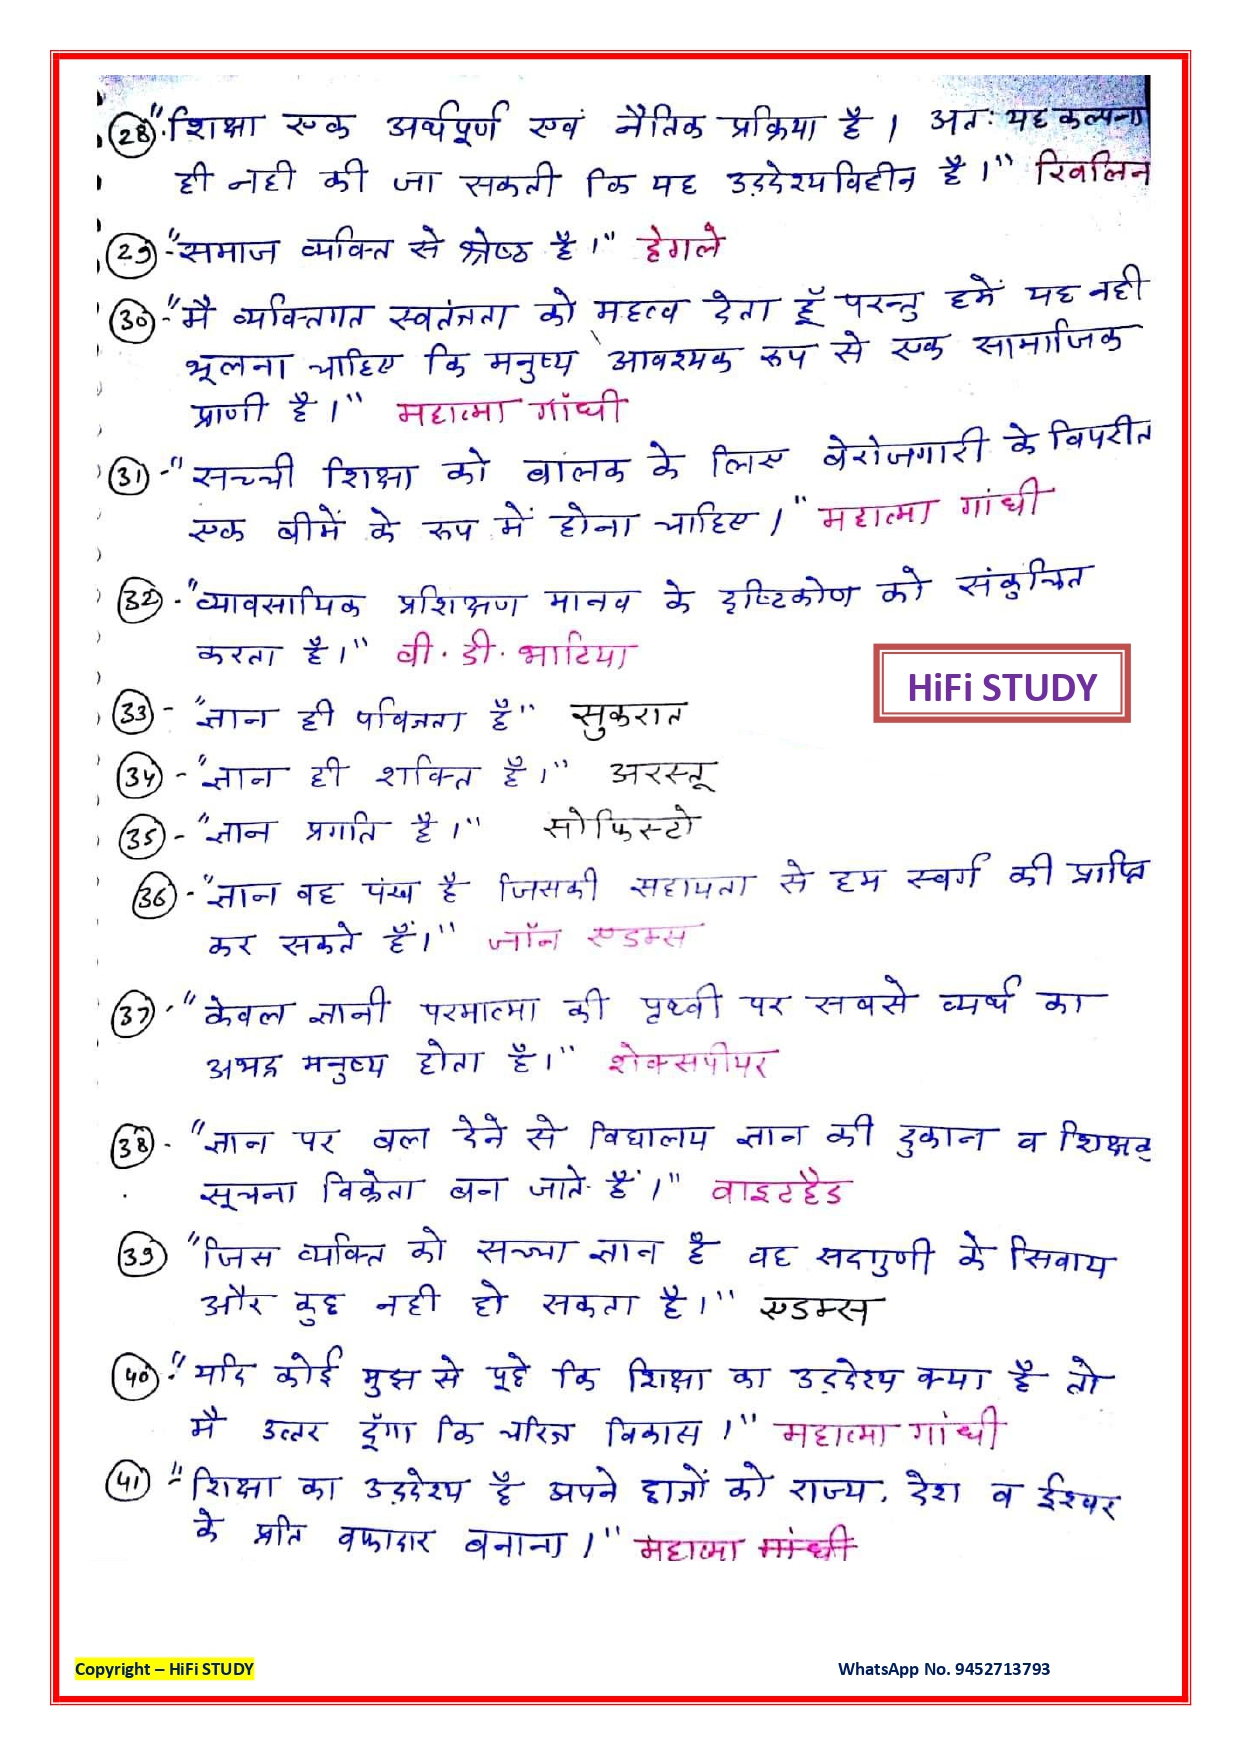 (28) "शिक्षा एक अर्थपूर्ण एवं नैतिक प्रक्रिया है। अतः यह कल्पना
ही नही की जा सकती कि यह उद्देश्यविहीन है।" रिवलिन
(29) - "समाज व्यक्ति से श्रेष्ठ है।" हेगले
(30) - "मै व्यक्तिगत स्वतंत्रता को महत्व देता हूँ परन्तु हमें यह नही
भूलना चाहिए कि मनुष्य आवश्यक रूप से एक सामाजिक
प्राणी है।" महात्मा गांधी
(31) - "सच्ची शिक्षा को बालक के लिए बेरोजगारी के विपरीत
एक बीमें के रूप में होना चाहिए।" महात्मा गांधी
(32) - "व्यावसायिक प्रशिक्षण मानव के दृष्टिकोण को संकुचित
करता है।" वी. डी. भाटिया
HiFi STUDY
(33) - "ज्ञान ही पवित्रता है" सुकरात
(34) - "ज्ञान ही शक्ति है।" अरस्तू
(35) - "ज्ञान प्रगति है।" सोफिस्टो
(36) - "ज्ञान वह पंख है जिसकी सहायता से हम स्वर्ग की प्राप्ति
कर सकते हैं।" जॉन एडम्स
(37) - "केवल ज्ञानी परमात्मा की पृथ्वी पर सबसे व्यर्थ का
मनुष्य होता है।" शेक्सपीयर
(38) - "ज्ञान पर बल देने से विद्यालय ज्ञान की दुकान व शिक्षक
सूचना विक्रेता बन जाते हैं।" वाइटहैड
(39) "जिस व्यक्ति को सच्चा ज्ञान है वह सदगुणी के सिवाय
और कुछ नही हो सकता है।" एडम्स
(40) - "यदि कोई मुझ से पूछे कि शिक्षा का उद्देश्य क्या है तो
मै उत्तर दूँगा कि चरित्र विकास।" महात्मा गांधी
(41) - "शिक्षा का उद्देश्य है अपने छात्रों को राज्य, देश व ईश्वर
के प्रति वफादार बनाना।" महात्मा गांधी
Copyright – HiFi STUDY WhatsApp No. 9452713793